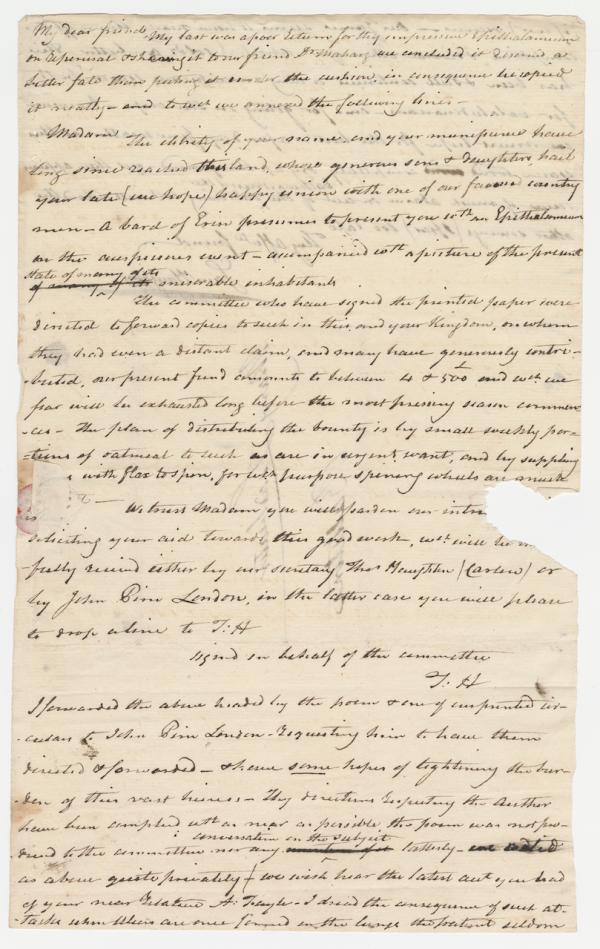 My dear friend, My last was a poor return for thy impressive Epithalamium
on reperusal & shewing it to our friend Dr Mahar we concluded it deserved, a
better fate than putting it under the cushion, in consequence he copied
it neatly - and to wch we annexed the following lines -
Madam The celebrity of your name, and your munificence have
long since reached this land, whose generous sons & daughters hail
your late (we hope) happy union with one of our favored country
men - A bard of Erin presumes to present you with an Epithalamium
on the auspicious event - accompanied wth a picture of the present
state of many of its
of many of its miserable inhabitants
The committee who have signed the printed paper were
directed to forward copies to such in this, and your Kingdom, on whom
they had even a distant claim, and many have generously contri-
-buted, our present fund amounts to between 4 & 500£ and wch we
fear will be exhausted long before the most pressing season commen-
-ces - The plan of distributing the bounty is by small weekly por-
-tions of oatmeal to such as are in urgent want, and by supplying
with flax to spin, for wch purpose spinning wheels are much
We trust Madam you will pardon our intr
soliciting your aid towards this good work, wch will be
fully received either by our secretary Thos Haughton (Carlow) or
by John Pim London, in the latter case you will please
to drop a line to T. H
signed on behalf of the committee
T. H
I forwarded the above headed by the poem & one of our printed cir-
-culars to John Pim London - requesting him to have them
directed & forwarded - & have some hopes of lightning the bur-
-den of this vast business - Thy directions respecting the Author
have been complied wth as near as possible, the poem was not pro-
conversation on the subject
-duced to the committee nor any latterly - we acted
as above quite privately - we wish hear the latest acct you had
of your near relative A. Fayle - I dread the consequence of such at-
-tacks when ulcers are once formed on the lungs the patient seldom